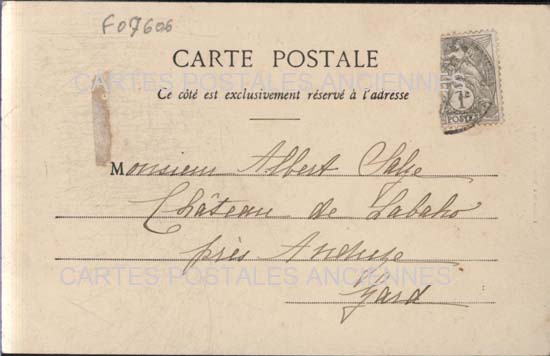 F07606
CARTE POSTALE
CARTES POSTALES ANCIENNES
Ce côté est exclusivement réservé à l'adresse
1c
POSTES
Monsieur Albert
Château de Labaho
près Anduze
CARTES POSTALES ANCIENNES
Gard